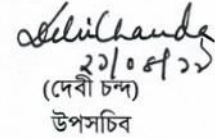 Debi Chanda
২১/০৪/২২
(দেবী চন্দ)
উপসচিব